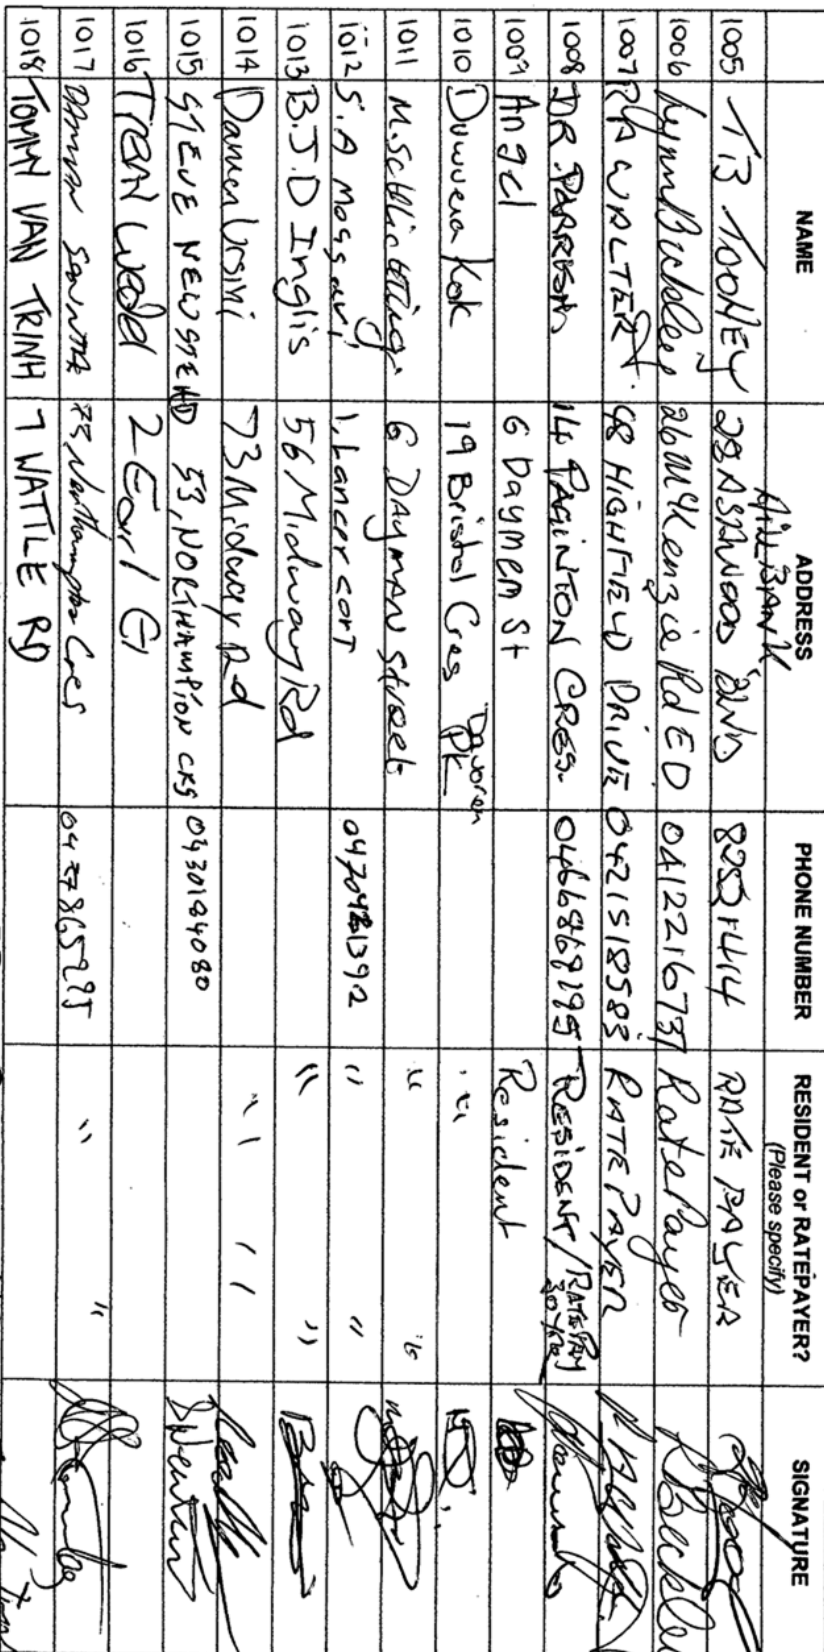 NAME ADDRESS PHONE NUMBER RESIDENT or RATEPAYER? (Please specify) SIGNATURE
1005 TB TOOHEY 28 ASHWOOD BLVD. MILLBANK 82551414 RATE PAYER
1006 Lynn Buckley 26 McKenzie Rd ED 0412216737 RatePayer
1007 RA WALTER. 48 HIGHFIELD DRIVE 0421518583 RATEPAYER
1008 DR PARREN 14 PAGINTON CRES. 0466869195 RESIDENT/RATEPAY
1009 Angel 6 Daymem St Resident
1010 Kok 19 Bristol Cres Davoren PK "
1011 M. Schlichting. 6 DAYMAN Street " "
1012 S.A 1, Lancer cort " "
1013 B.J.D Inglis 56 Midway Rd " "
1014 Darren Ursini 73 Midway Rd " "
1015 STEVE NEWSTEAD 53, NORTHAMPTON CRS 0430184080
1016 2 Earl
1017 75 Northampton Cres " "
1018 TOMMY VAN TRINH 7 WATTLE RD